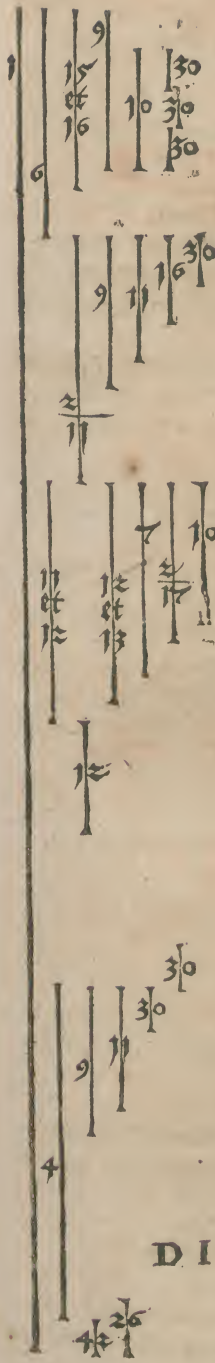 1 6 15 et 16 9 10 30
30
30
2
11 9 11 16 30
11 et 12 12 et 13 7 2
17 10
12
4 9 11 30 30
D I
42 26